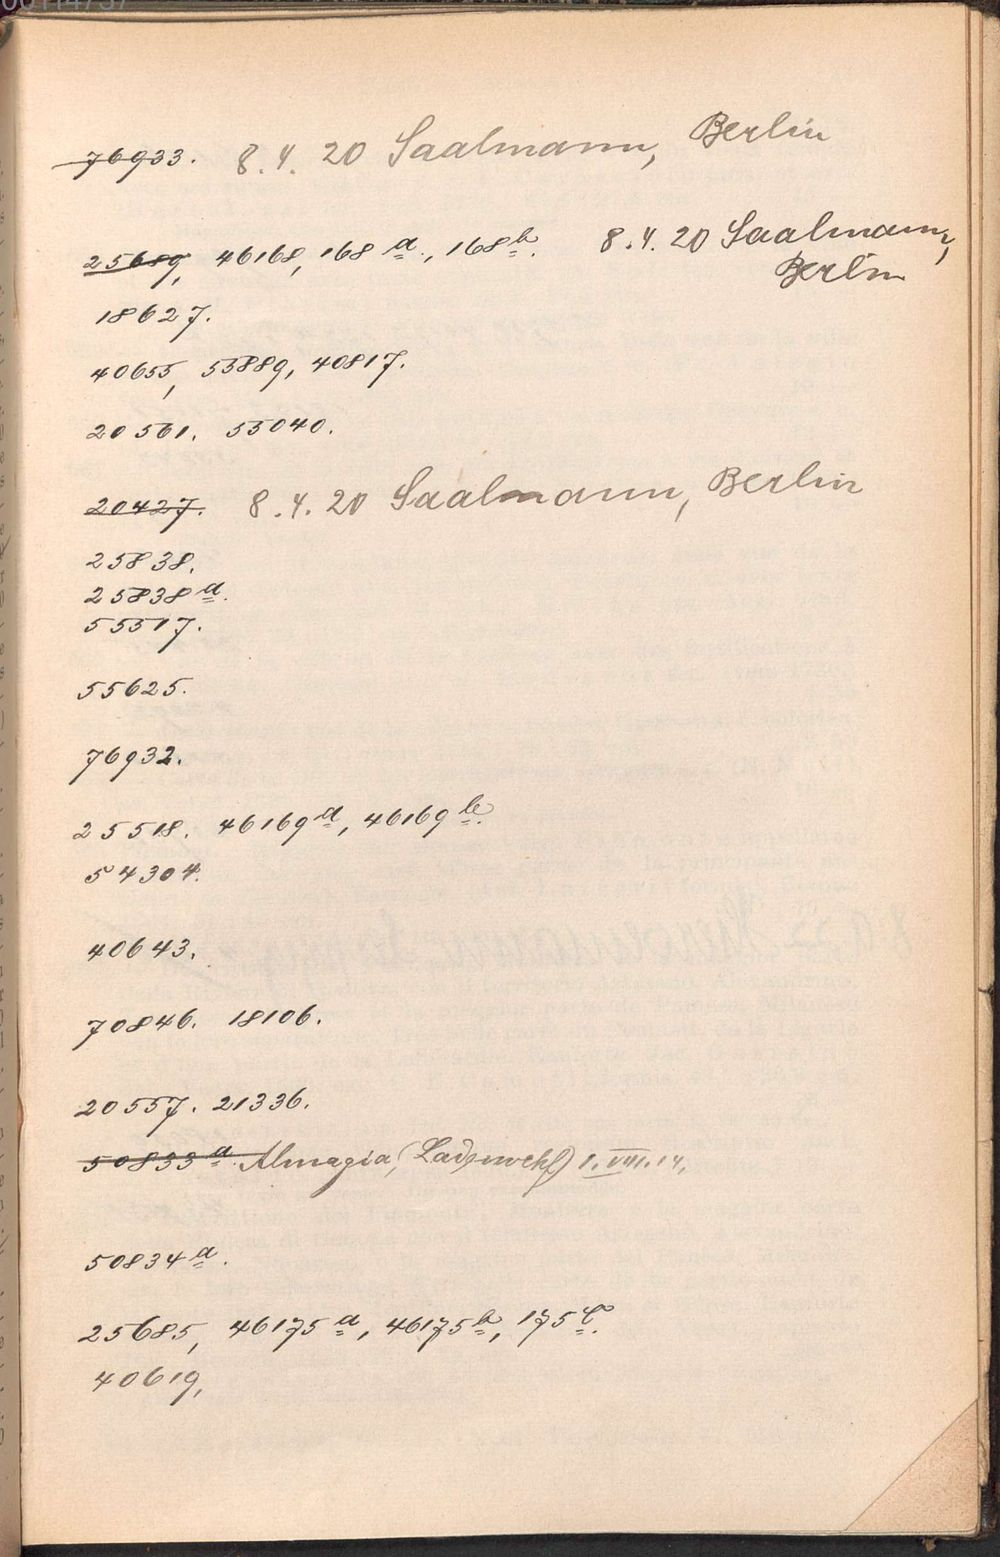 76933. 8.4.20 Saalmann, Berlin
25689, 46168, 168a., 168b. 8.4.20 Saalmann,
Berlin
18627.
40655, 53889, 40817.
20561. 55040.
20427. 8.4.20 Saalmann, Berlin
25838.
25838a.
55517.
55625.
76932.
25518. 46169a, 46169b.
54304.
40643.
70846. 18106.
20557. 21336.
50833a. Almagia 1.VIII.14.
50834a.
25685, 46175a, 46175b, 175c.
40619,